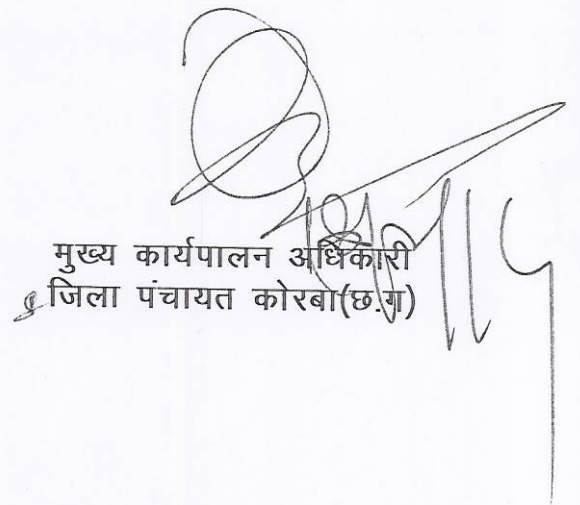 मुख्य कार्यपालन अधिकारी
जिला पंचायत कोरबा(छ.ग)